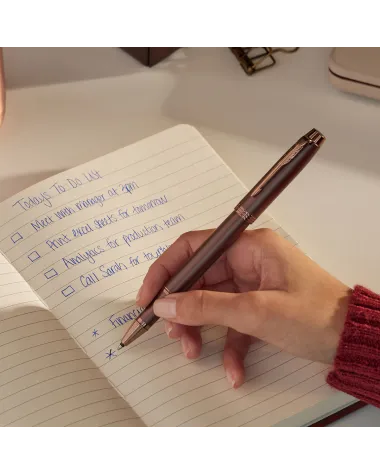 Today's To Do List
□ Meet with manager at 2pm
□ Print excel sheets for tomorrow
□ Analytics for production team
□ Call Sarah for
* Financ
*